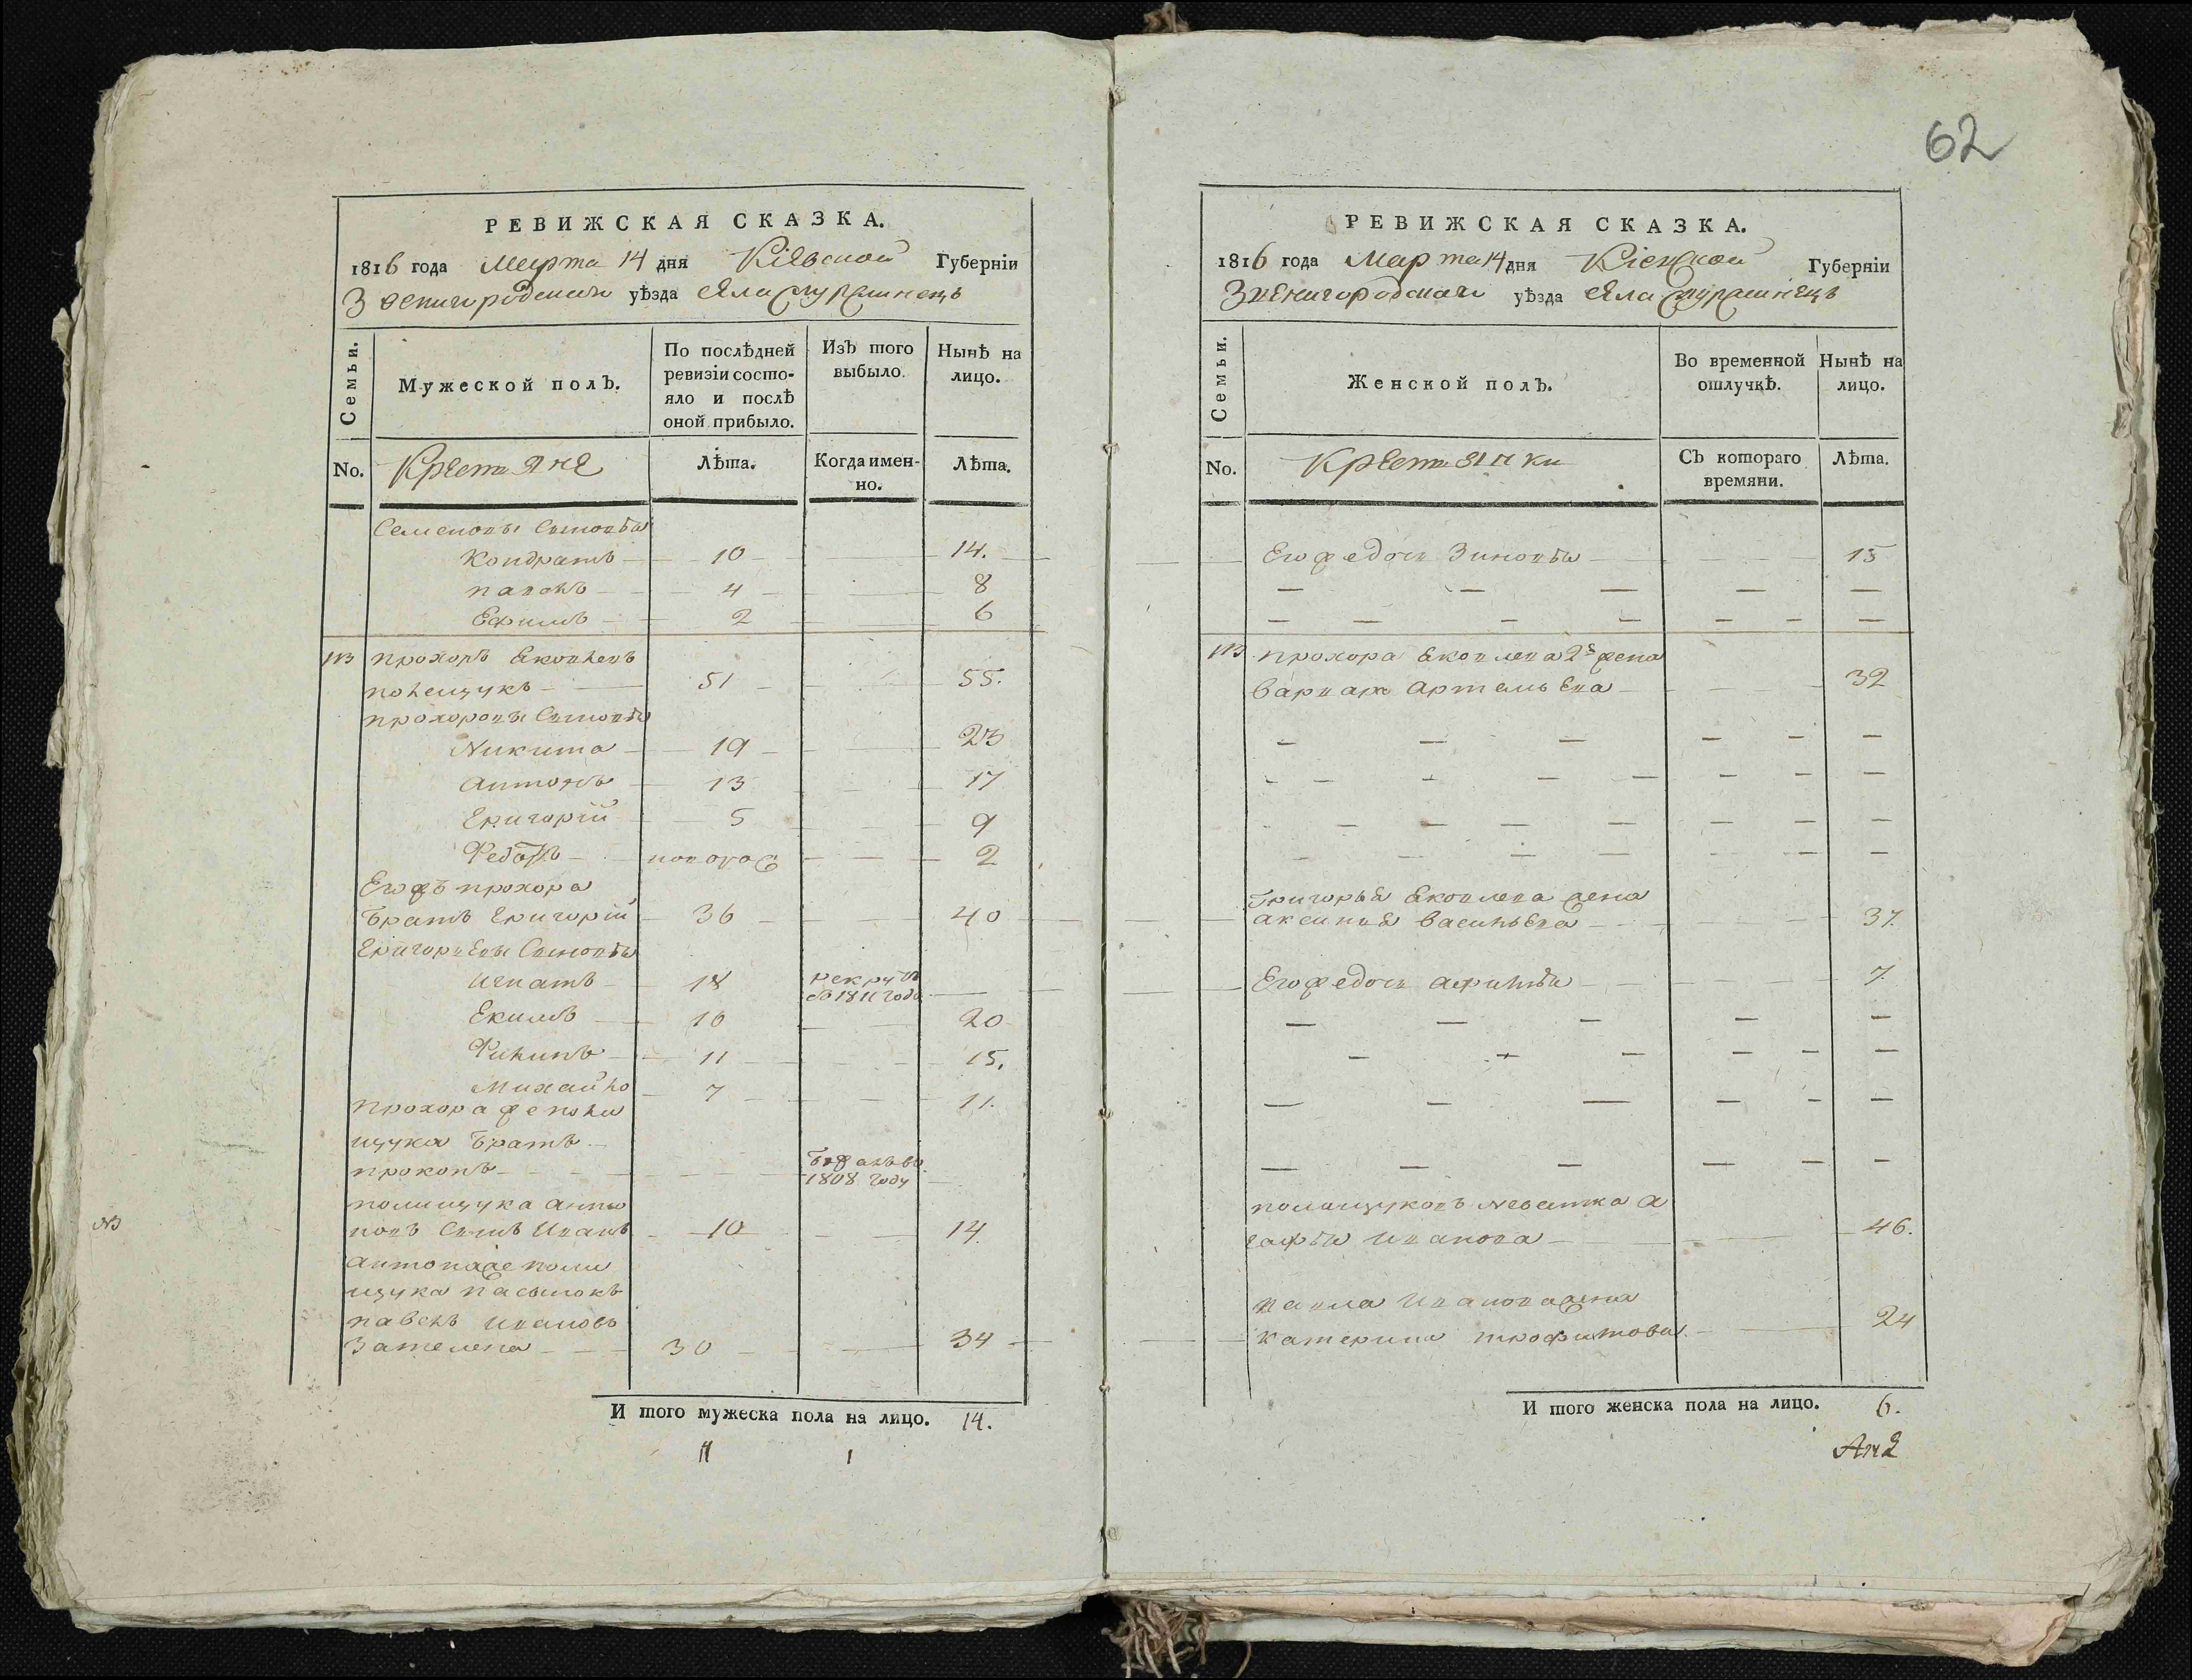 62
РЕВИЖСКАЯ СКАЗКА.
1816 года Марта 14 дня Кіевской Губерніи
Звенигородскаго уѣзда Села
Семьи.
Мужеской полъ.
По послѣдней ревизіи состо-
яло и послѣ
оной прибыло.
Изъ того
выбыло.
Нынѣ на
лицо.
No.
Крестяне
Лѣта.
Когда имен-
но.
Лѣта.
Семеновы Сыновья
Кондратъ 10 14.
павелъ 4 8
Ефимъ 2 6
113 прохоръ Яковлевъ
полещукъ 51 55.
прохоровы Сыновья
Никита 19 23
антонъ 13 17
Григорій 5 9
Федотъ 2
Егожъ прохора
братъ Григорій 36 40
Григориевы Сыновья
игнатъ 18 рекрутъ
въ 1811 году
Екимъ 16 20
Филипъ 11 15.
Михайло 7 11.
прохора же поли
щука братъ
прокопъ
1808 году
полищука анто
новъ Сынъ Иванъ 10 14.
антона же поли
щука пасынокъ
павелъ ивановъ
30 34
И того мужеска пола на лицо. 14.
11 1
РЕВИЖСКАЯ СКАЗКА.
1816 года Марта 14 дня Кіевской Губерніи
Звенигородскаго уѣзда Села
Семьи.
Женской полъ.
Во временной
отлучкѣ.
Нынѣ на
лицо.
No.
Крестянки
Съ котораго
времяни.
Лѣта.
Его дочь Зиновья 15
113 прохора Яковлева 2я жена
варвара артемьева 32
Григорья Яковлева жена
аксинья васильева 37.
Его дочь 7
полищуковъ невестка а
гафья иванова 46.
павла иванова жена
катерина трофимова 24
И того женска пола на лицо. 6.